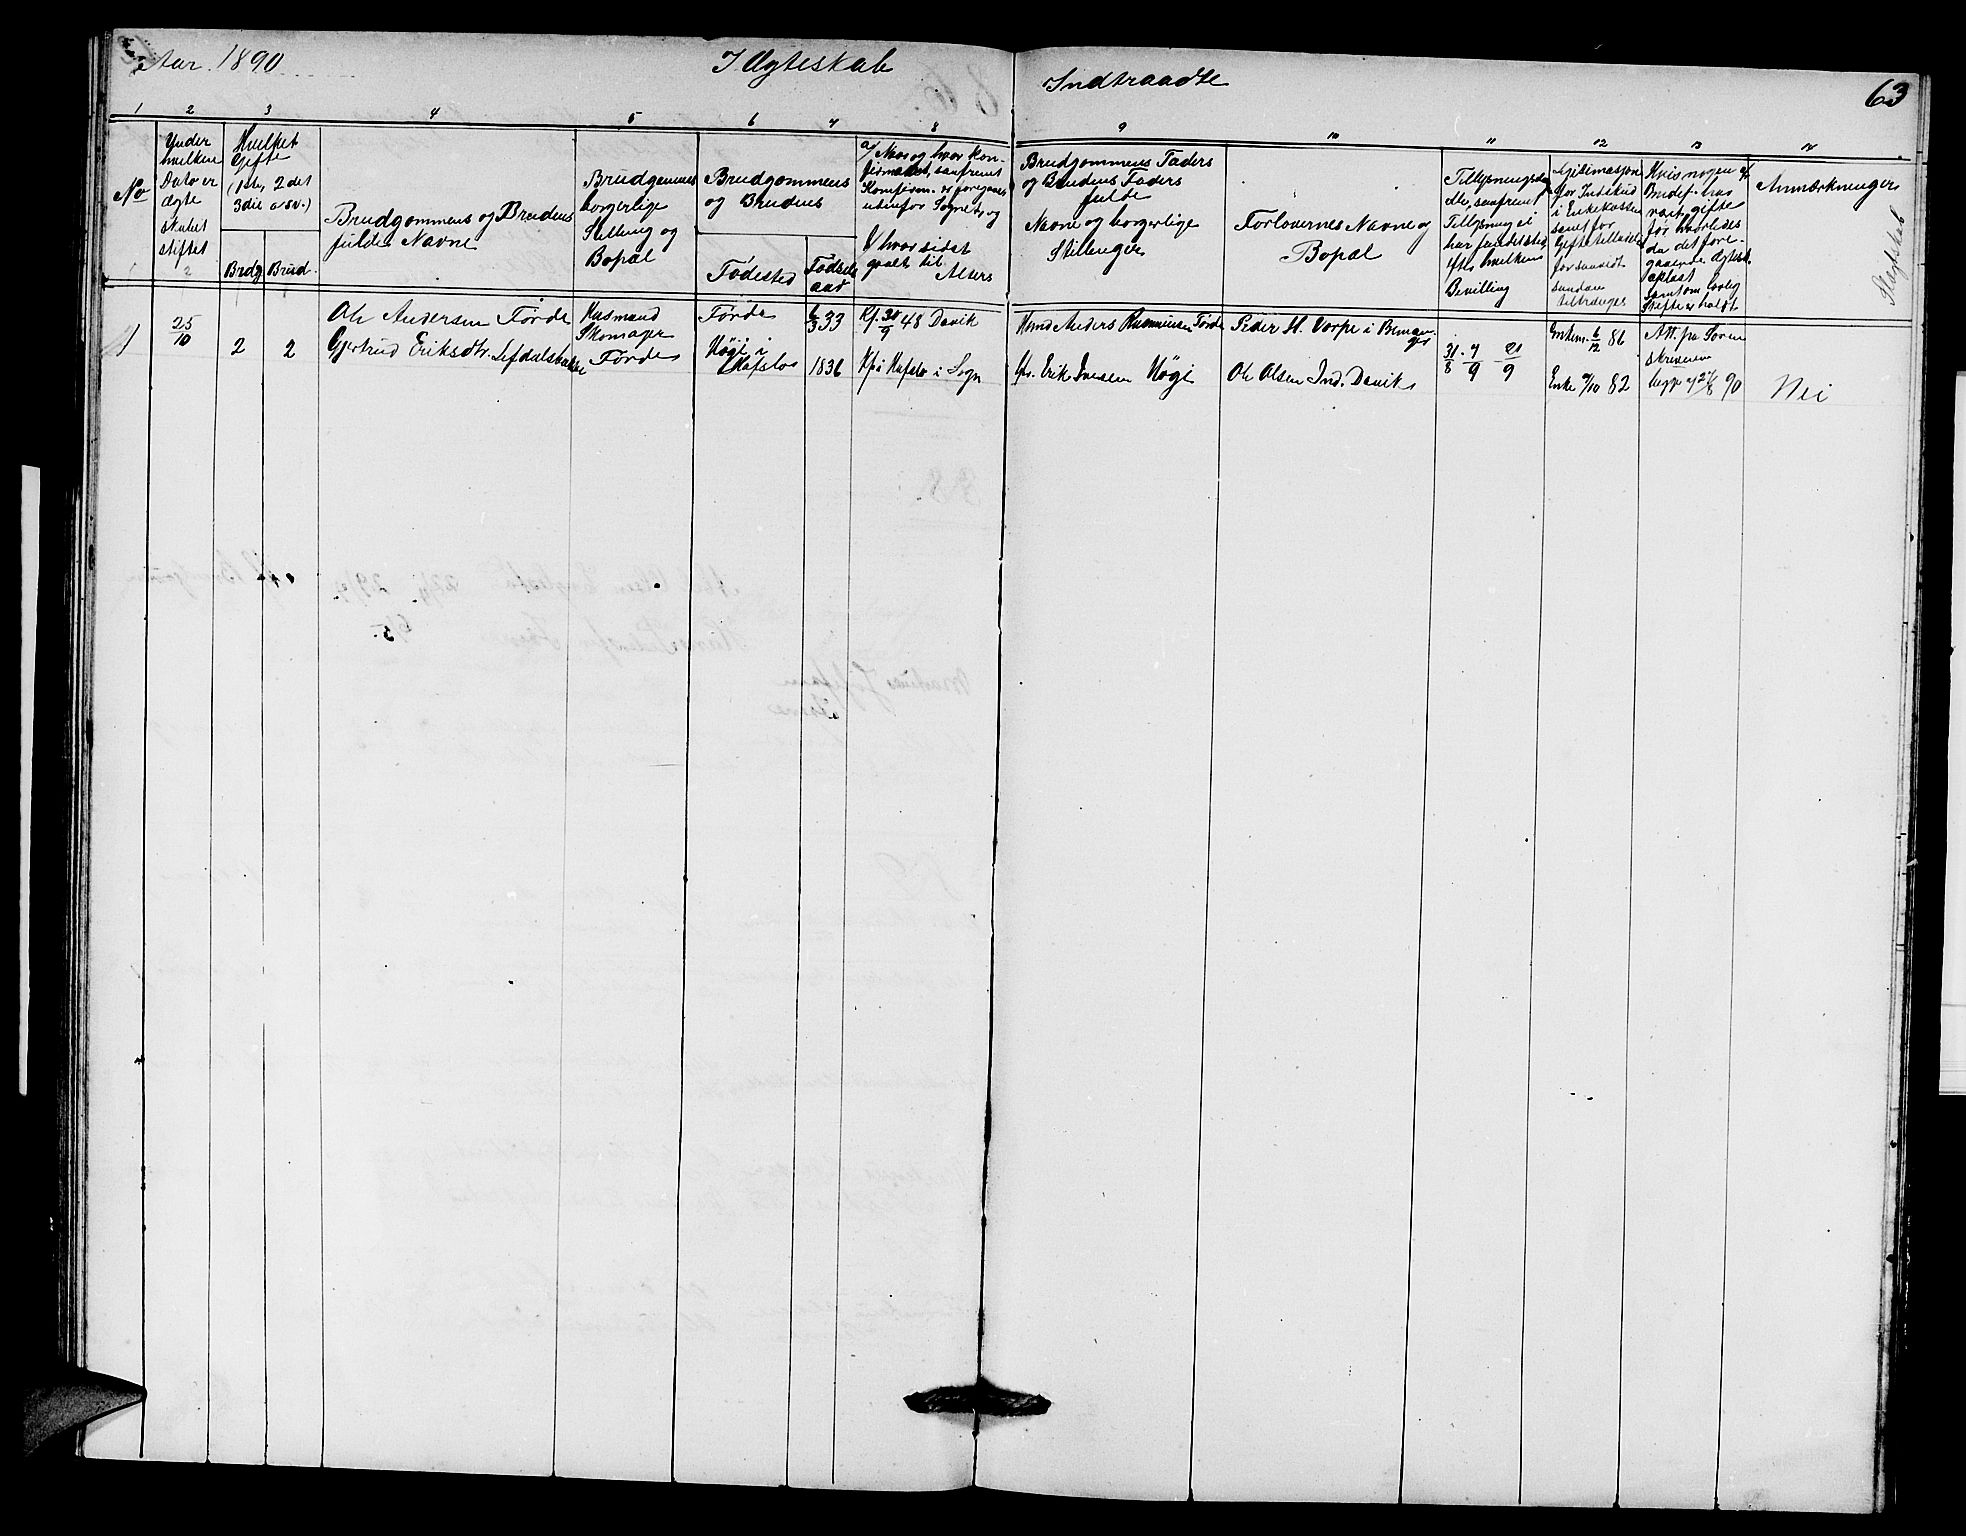 Aar 1890
I Ægteskab
Indtraadte
63
1 2 3 4 5 6 7 8 9 10 11 12 13 14
No
Under
hvilken
Dato er
Ægte
skabet
stiftet
Hvilket
Gifte
(1ste, 2det
3die osv.)
Brdg. Brud.
Brudgommens og Brudens
fulde Navne
Brudgommens
borgerlige
Stilling og
Bopæl
Brudgommens
og Brudens
Fødested
Fødsels
aar
a/ Naar og hvor kon-
firmeret, saafremt
Konfirm. er foregaaet
udenfor Sognet, og
b/ hvor sidst
gaaet til
Alters
Brudgommens Faders
og Brudens Faders
fulde
Navne og borgerlige
Stillinger
Forlovernes Navne og
Bopæl
Tillysningsda
saafremt
Tillysning ei
har fundet sted
efter hvilken
Bevilling
for Indskud
i Enkekassen
samt for
Giftetilladelse
forsaavidt
saadan
tiltrænges
Hvis nogen af
Brudef. har
været gifte
før hvorledes
da det fore-
gaaende Ægtesk.
opløst
samt om lovlig
Skifte er holdt
Anmærkninger
Slegtskab
1
25/10
2 2
Ole Andersen Førde
Gjertrud Eriksdtr. Lefdalsbakke
Husmand
Skomager
Førde
Førde
Høgi i
Hafslo
6/3 33
1836
Kf. 30/9 48 Davik
Kf. i Hafslo i Sogn
Husmd Anders Rasmussen Førde
Erik Iversen Høgi
Peder H. Vorpe i Breman-
ger
Ole Olsen Ind. Davik
31/8 . 7/9 21/9
Enkem. 6/12 86
Enke 9/10 82
Att. fra Soren
skriveren
begge af 27/8 90
Nei